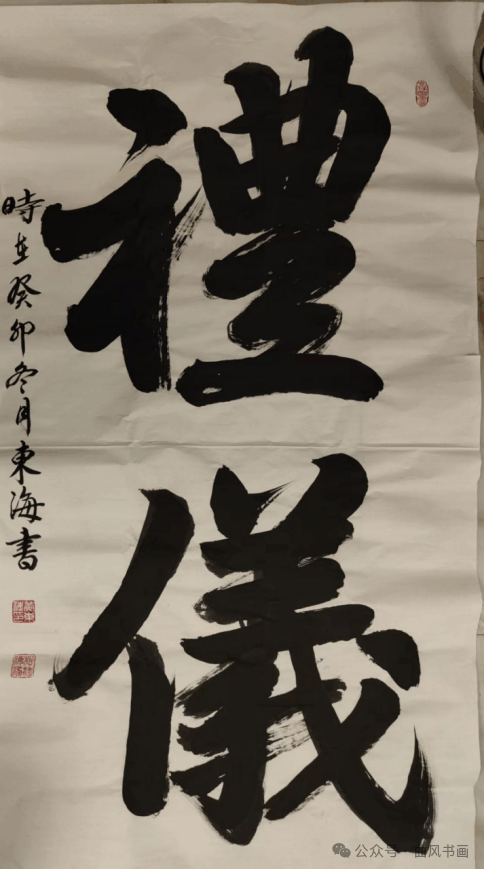 禮儀
時在癸卯冬月東海書
公众号·一品风书画